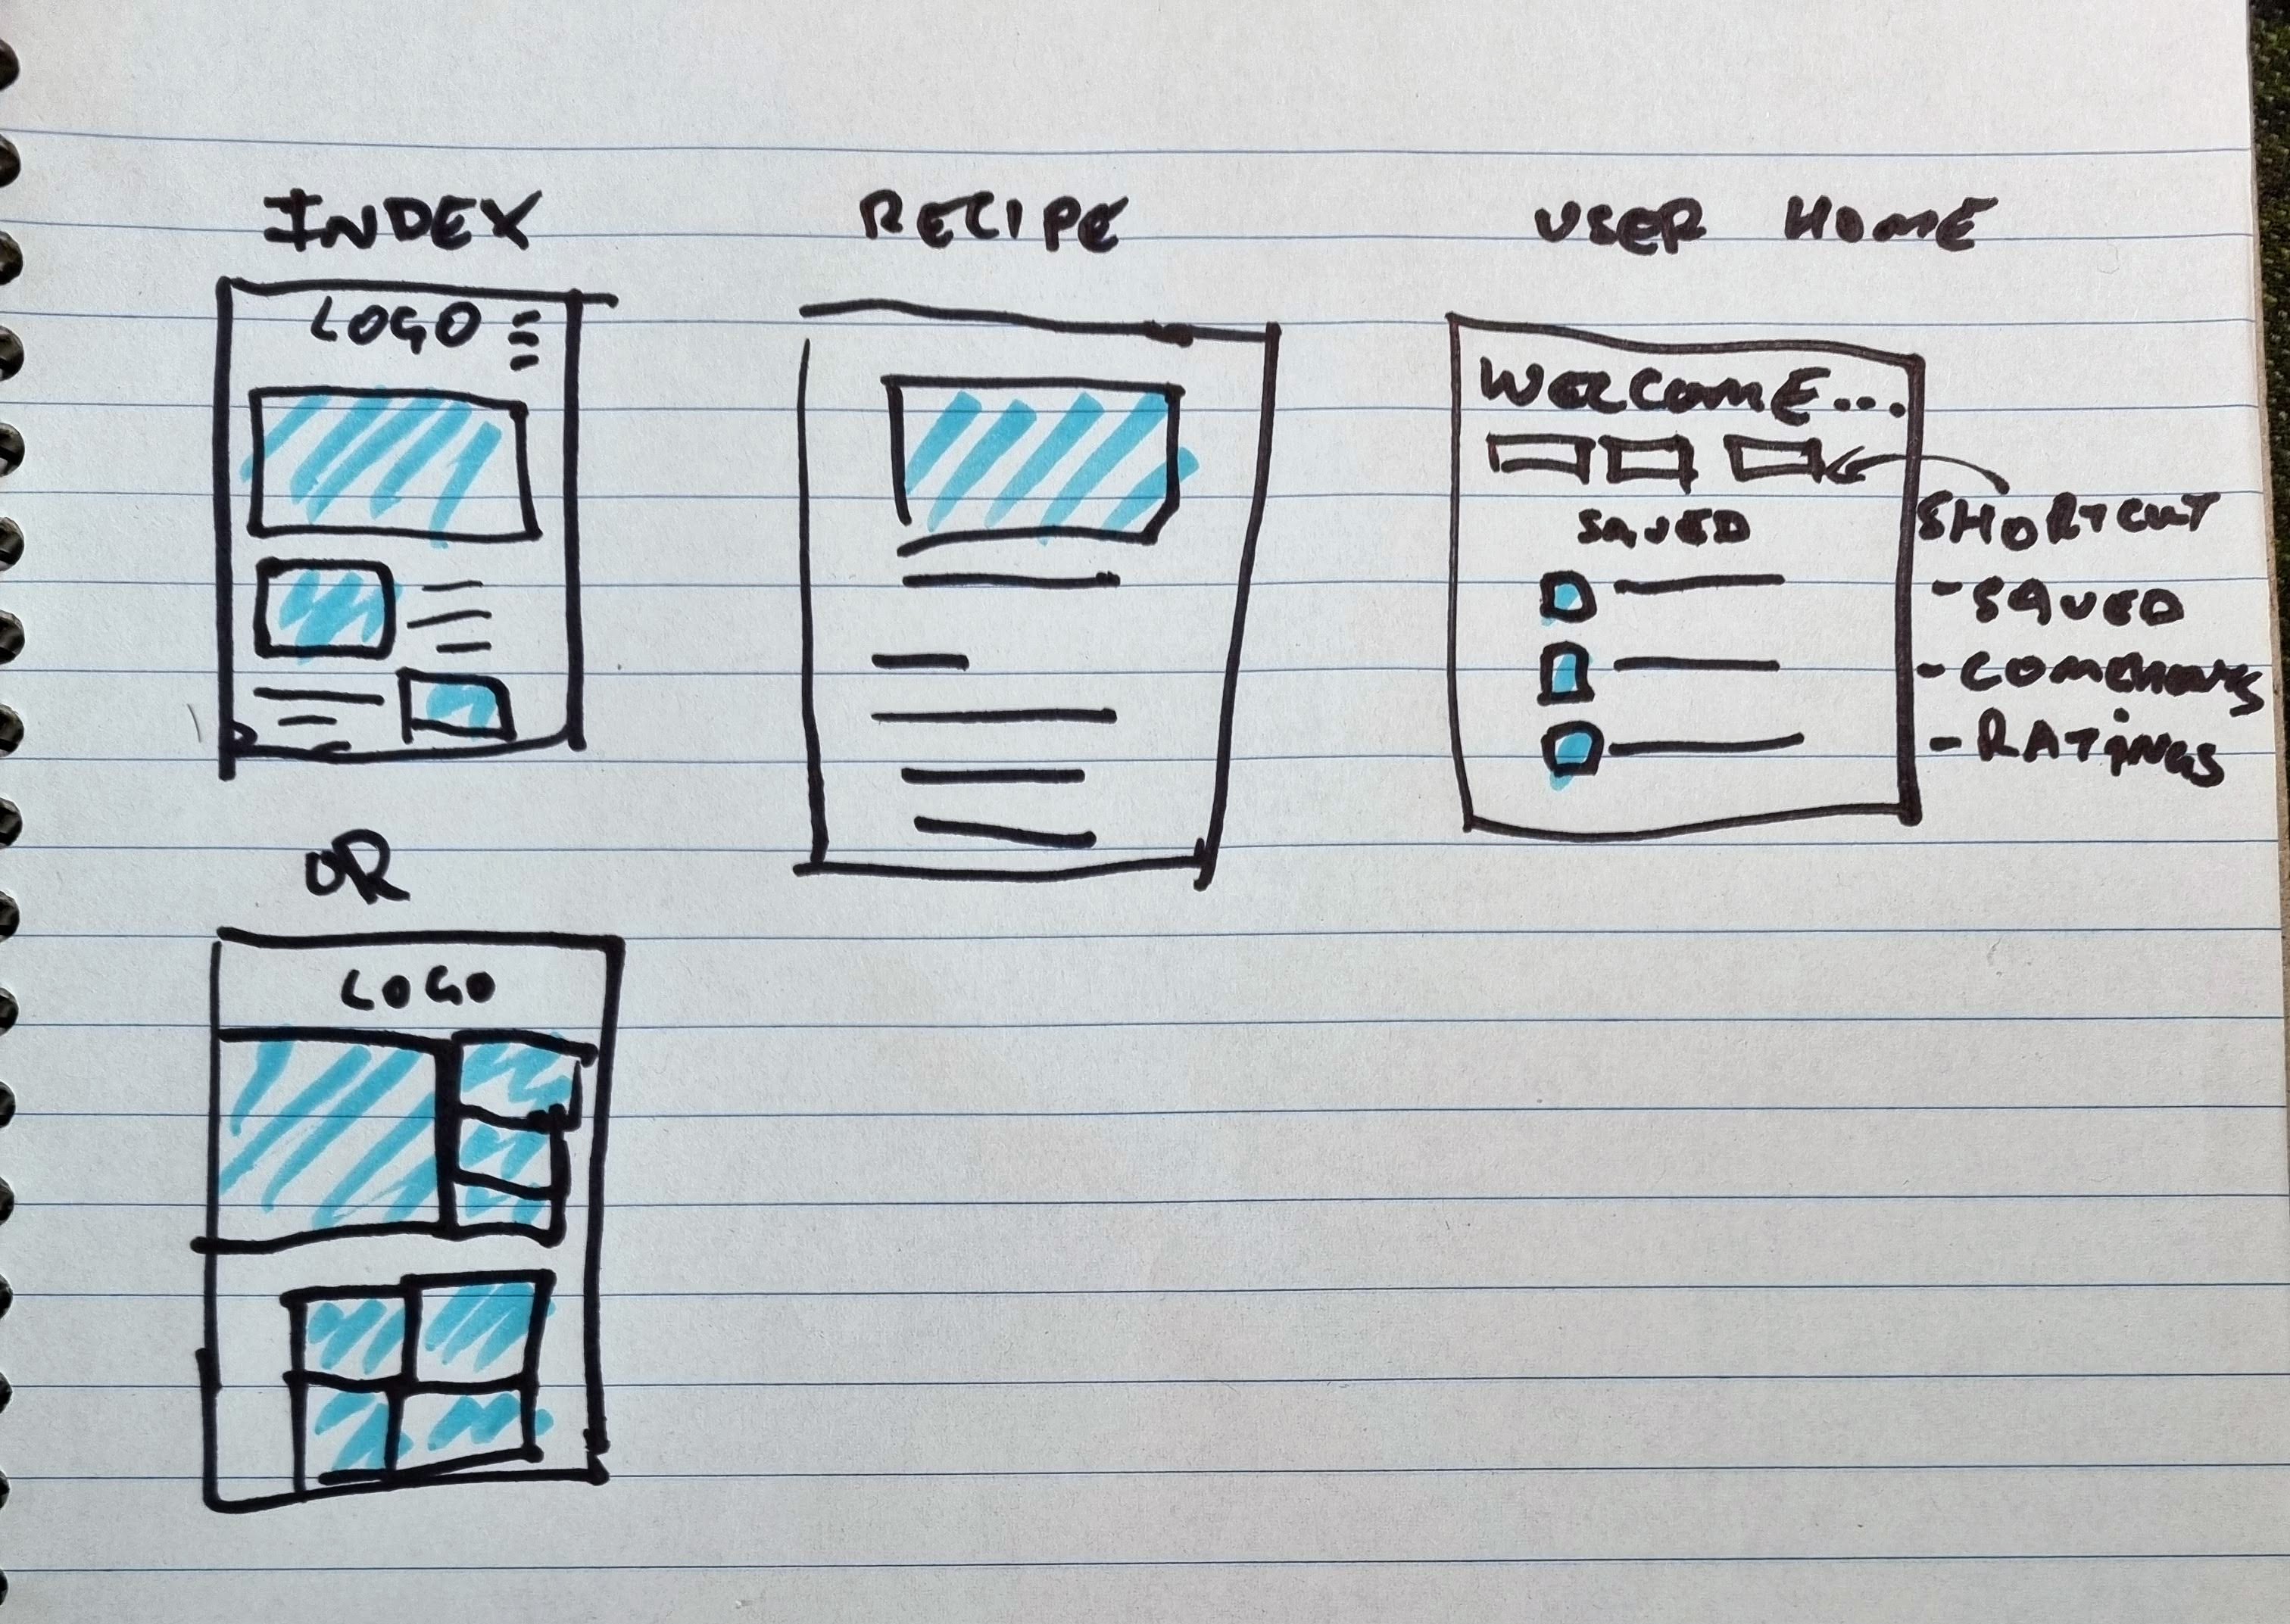 INDEX
LOGO
OR
LOGO
RECIPE
USER HOME
WELCOME...
SAVED
SHORTCUT
- SAVED
- COMMENTS
- RATINGS